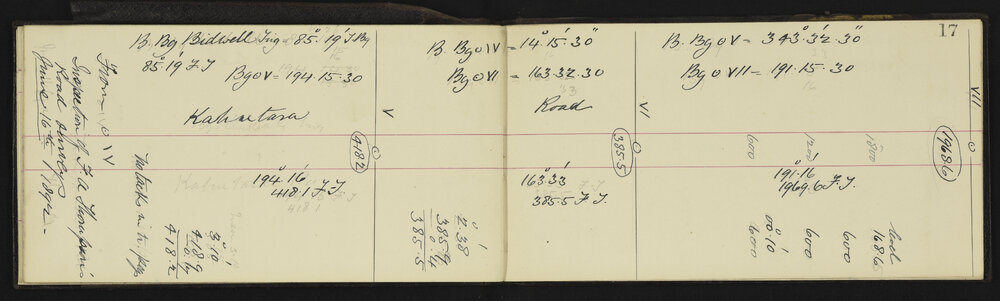 17
B. Bg. Bidwell Trig = 85° 19' F. Bg
85° 19' F.J
Bg o V = 194.15.30
Kahutara
From o IV
Inspection of F. A. Thompson's
Road survey
June 16th
4182
V
194° 16'
418.1 F.J.
3° 10'
418.9
418.2
B. Bg o IV = 14° 15' 30"
Bg o VI = 163.32.30
Road
VI
385.5
163° 33'
385.5 F.J.
2° 38'
385.9
0.4
385.5
B. Bg o V = 343° 32' 30"
Bg o VII = 191.15.30
VII
1968.6
600
1200
1800
191° 16'
1969.6 F.J.
00° 10'
600
600
600
168.6